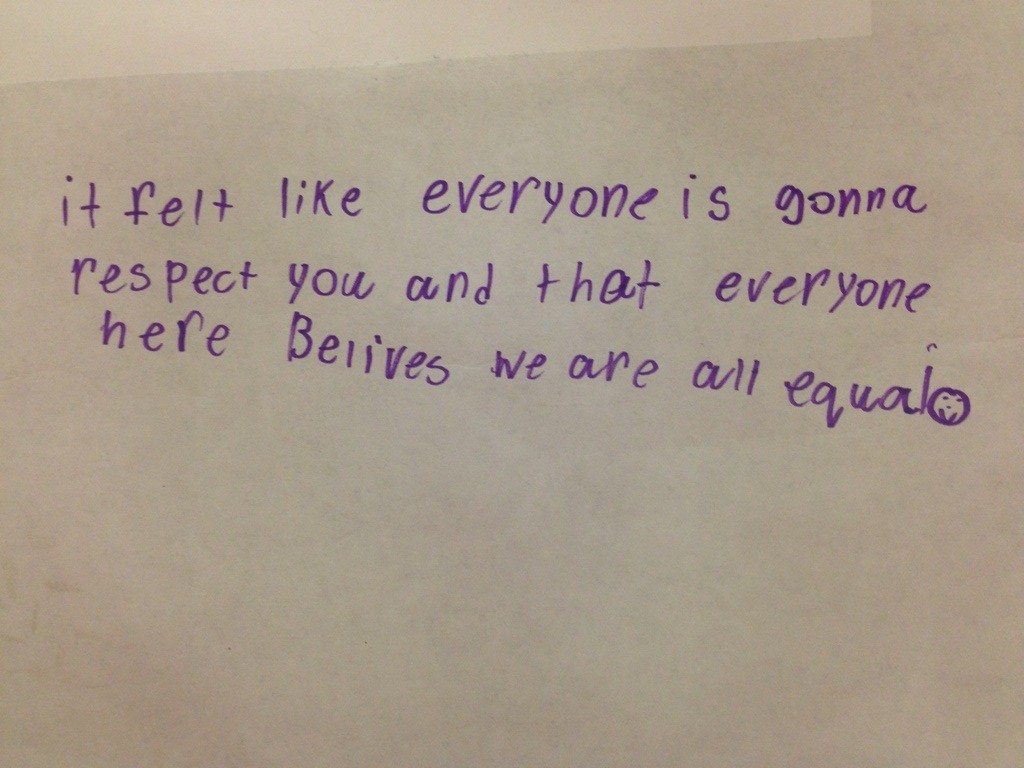 it felt like everyone is gonna
respect you and that everyone
here Belives we are all equal